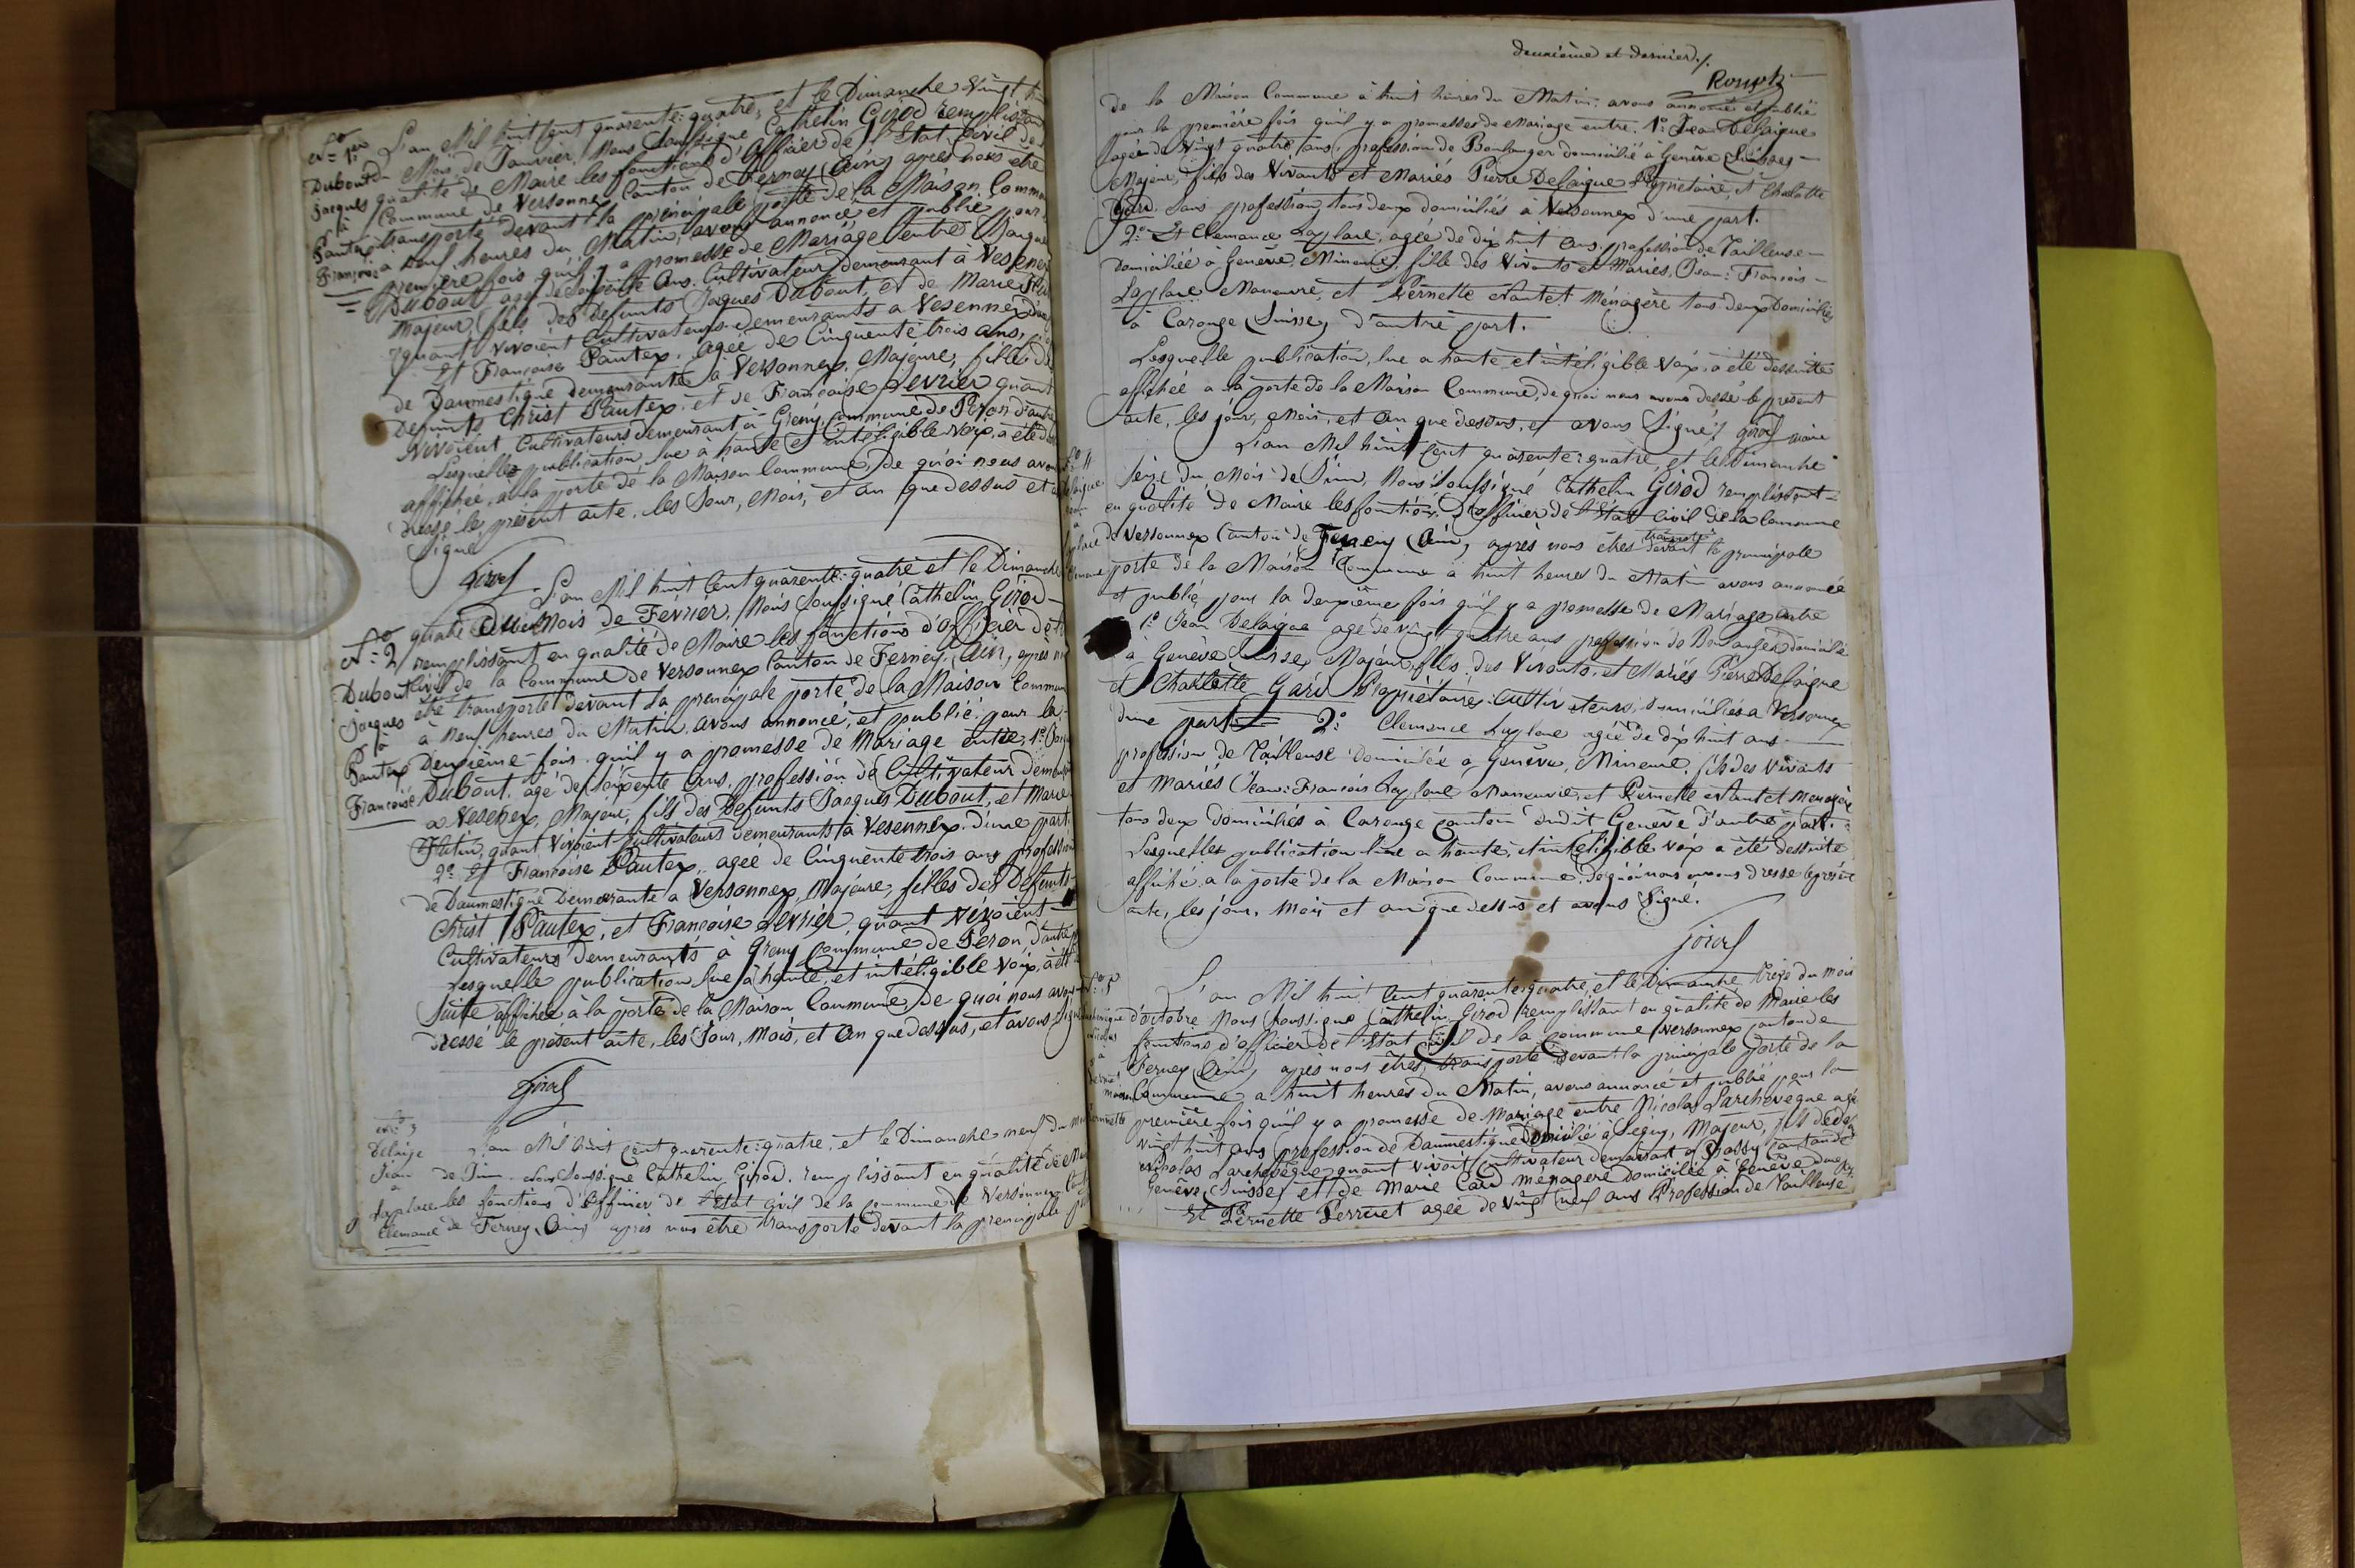 N° 1er
Dubout
Jacques
à
Pautex
Françoise
L'an Mil huit Cent quarente-quatre, et le Dimanche Vingt
du Mois de Janvier, Nous Soussigné Cathelin Girod remplissant
qualité de Maire les fonctions d'officier de l'Etat Civil de
Commune de Versonnex Canton de Ferney (Ain) après nous être
transporté devant la principale porte de la Maison Commu
à neuf heures du Matin, avons annoncé et publié pour
première fois qu'il y a promesse de Mariage entre Jacques
Dubout agé de soixente Ans. Cultivateur demeurant à Vesenex
Majeur, fils des défunts Jacques Dubout, et de Marie
quant vivoient Cultivateurs demeurants a Vesennex d'une
Et Françoise Pautex. agée de Cinquente trois ans,
de Daumestique demeurante a Versonnex. Majeure, fille de
Defunts Christ Pautex. et de Françoise Levrier quant
Vivoient Cultivateurs demeurant à Greny Commune de Péron d'autre
Lesquelles publication lue à haute et intéligible Voix, a été
affichée, a la porte de la Maison Commune, De quoi nous avons
dressé le présent acte. les Jour, Mois, et an que dessus et
Signé
Girod
N° 2
Dubout
Jacques
à
Pautex
Françoise
L'an Mil huit Cent quarente-quatre et le Dimanche
quatre du Mois de Fevrier. Nous Soussigné Cathelin Girod
remplissant en qualité de Maire les fonctions d'officier de
Civil de la Commune de Versonnex Canton de Ferney, (Ain, après
être transporté devant la principale porte de la Maison Commun
à Neuf heures du Matin, avons annoncé, et publié pour la
Deuxième fois qu'il y a promesse de Mariage entre, 1°
Dubout, agé de soixente Ans, profession de Cultivateur demeur
a Vesenex, Majeur, fils des Defunts Jacques Dubout, et Marie
quant Vivoient Cultivateurs demeurants à Vesennex. d'une part.
2° Et Françoise Pautex, agée de Cinquente trois ans profession
de Daumestique Demeurante a Versonnex, Majeure, filles des Defunts
Christ Pautex, et Françoise Levrier, quant Vivoient
Cultivateurs demeurants à Greny Commune de Peron, d'autre
Lesquelle publication lue à haute, et intéligible Voix, a été
Suite affichée à la porte de la Maison Commune De quoi nous avons
dressé le présent acte, les Jour, Mois, et An que dessus, et avons Signé
Girod
N° 3
Delaige
Jean
à
Laplace
Clemance
L'an Mil huit Cent quarente-quatre, et le Dimanche neuf du
de Juin. Nous Soussigné Cathelin Girod, remplissant en qualité de
les fonctions d'officier de l'Etat Civil de la Commune de Versonnex
de Ferney (Ain) après nous être transporté devant la principale
Deuxième et dernier ./.
de la Maison Commune à huit heures du Matin. avons annoncé et publié
pour la première fois qu'il y a promesses de Mariage entre. 1° Jean Delaigue
agée de Vingt quatre ans, profession de Boulanger domicilié à Genève (Suisse)
Majeur, fils des Vivants et Mariés Pierre Delaigue Propriétaire, et Charlotte
Gard. Sans profession, tous deux domiciliés à Versonnex d'une part.
2° Et Clemance Laplace, agée de dix huit Ans, profession de Tailleuse
domiciliée à Genève, Mineure, fille des Vivants et Mariés, Jean-François
Laplace Maneuvre, et Pernette Ménagère tous deux Domiciliés
à Carouge (Suisse, d'autre part.
Lesquelle publication, lue a haute et intéligible Voix. a été dessuitte
affichée a la porte de la Maison Commune, de quoi nous avons dressé le présent
acte, les jour, Mois, et an que dessus, et avons Signé Girod maire
N° 4
L'an Mil huit Cent quarente-quatre, et le Dimanche
Seize du Mois de Juin, Nous Soussigné Cathelin Girod remplissant
en qualité de Maire les fonctions d'officier de l'Etat Civil de la Commune
de Versonnex Canton de Ferney (Ain, après nous êtres transporté devant la principale
porte de la Maison Commune à huit heures du Matin avons annoncé
et publié pour la deuxième fois qu'il y a promesse de Mariage entre
1° Jean Delaigue agé de vingt quatre ans profession de Boulanger domicilié
à Genève Suisse, Majeur, fils des Vivants, et Mariés Pierre Delaigue
et Charlotte Gard Propriétaires Cultivateurs, domiciliés a Versonnex
d'une part. 2° Clemence Laplace agée de dix huit ans
profession de Tailleuse Domiciliée à Genève, Mineure. fils des Vivants
et Mariés Jean-François Laplace Maneuvre, et Pernette Menagère
tous deux domiciliés à Carouge Canton dudit Genève d'autre part.
Lesquelles publication lue a haute, et inteligible voix a été dessuite
affiché. a la porte de la Maison Commune. De quoi nous avons dresse le présent
acte, les jour, Mois et an que dessus et avons Signé.
Girod
N° 5
L'an Mil huit Cent quarente-quatre, et le Dimanche Treize du mois
d'octobre Nous Soussigné Cathelin Girod remplissant en qualité de Maire les
fonctions d'officier de l'Etat Civil de la Commune Versonnex Canton de
Ferney (Ain) après nous êtres transporté devant la principale porte de la
maison Commune a huit heures du Matin, avons annoncé et publié pour la
première fois qu'il y a promesse de Mariage entre Nicolas Larchevêque agé
vingt huit ans profession de Daumestique Domicilié à Segny, Majeur, fils de
Nicolas Larchevêque quant vivoit Cultivateur demeurant a Canton de
Genève, (Suisse) et de Marie Card menagère domiciliée à Genève d'une
Et Pernette Perruet agée de vingt neuf ans Profession de Tailleuse